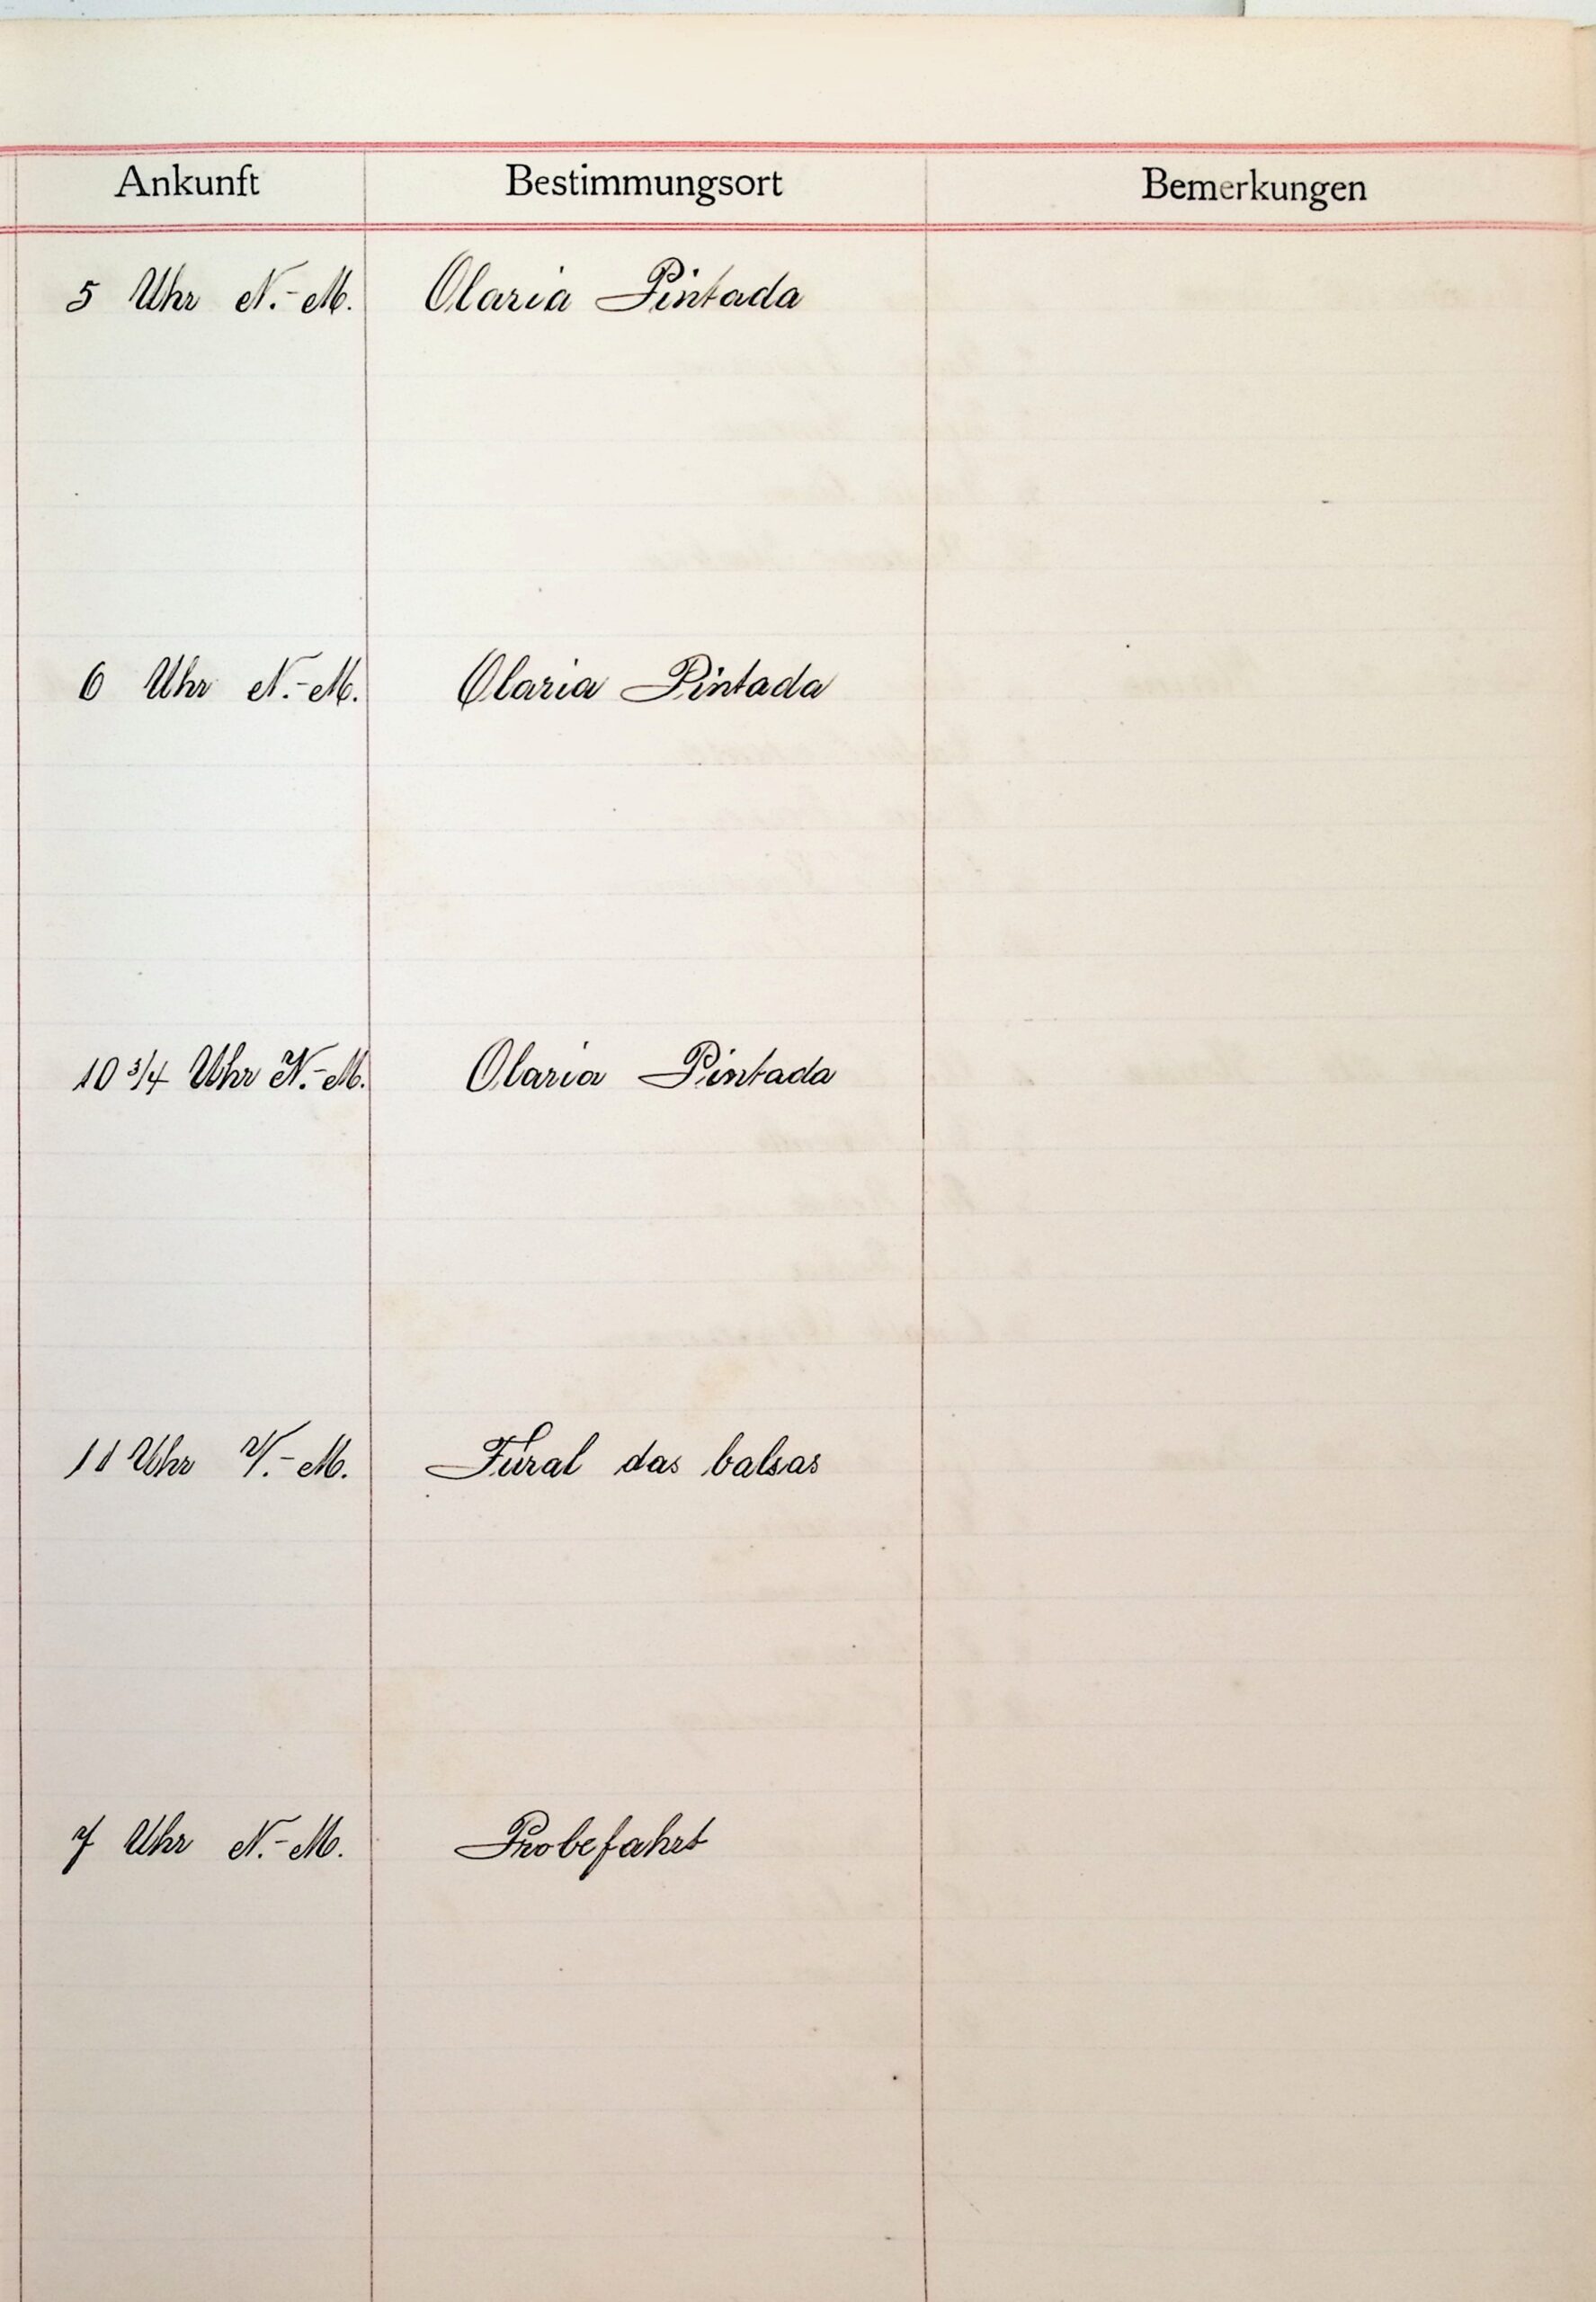 Ankunft Bestimmungsort Bemerkungen
5 Uhr N.-M. Olaria Pintada
6 Uhr N.-M. Olaria Pintada
10 3/4 Uhr N.-M. Olaria Pintada
11 Uhr V.-M. Fural das balsas
7 Uhr N.-M. Probefahrt